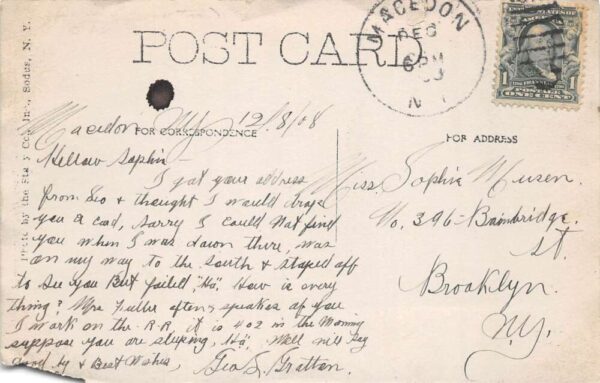 MACEDON
DEC
6 PM
N.Y.
POST CARD
ONE CENT
1
Sodus, N. Y.
Macedon Ny 12/8/08
FOR CORRESPONDENCE
FOR ADDRESS
Hellow Sophia—
I got your address
from Leo & thought I would drop
you a card, sorry I could Not find
you when I was down there, was
on my way to the South & stoped off
to see you But failed, "Ha", How is every
thing? Mrs Fuller often speakes of you
I work on the R.R, it is 4 02 in the Morning
suppose you are sleeping, Ha, Well will say
Good by & Best Wishes,
Geo L. Grattan.
Miss. Sophia Musen.
No. 396-Bainbridge.
St.
Brooklyn.
N.Y.